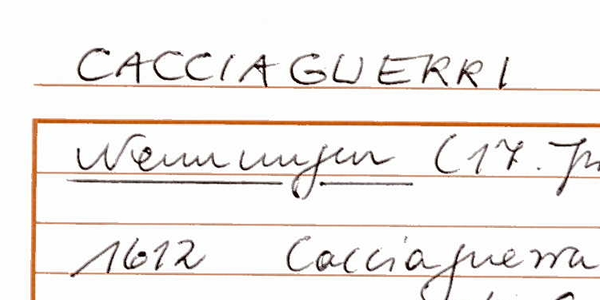 CACCIAGUERRI
Nennungen (17. J
1612 Cacciaguerra